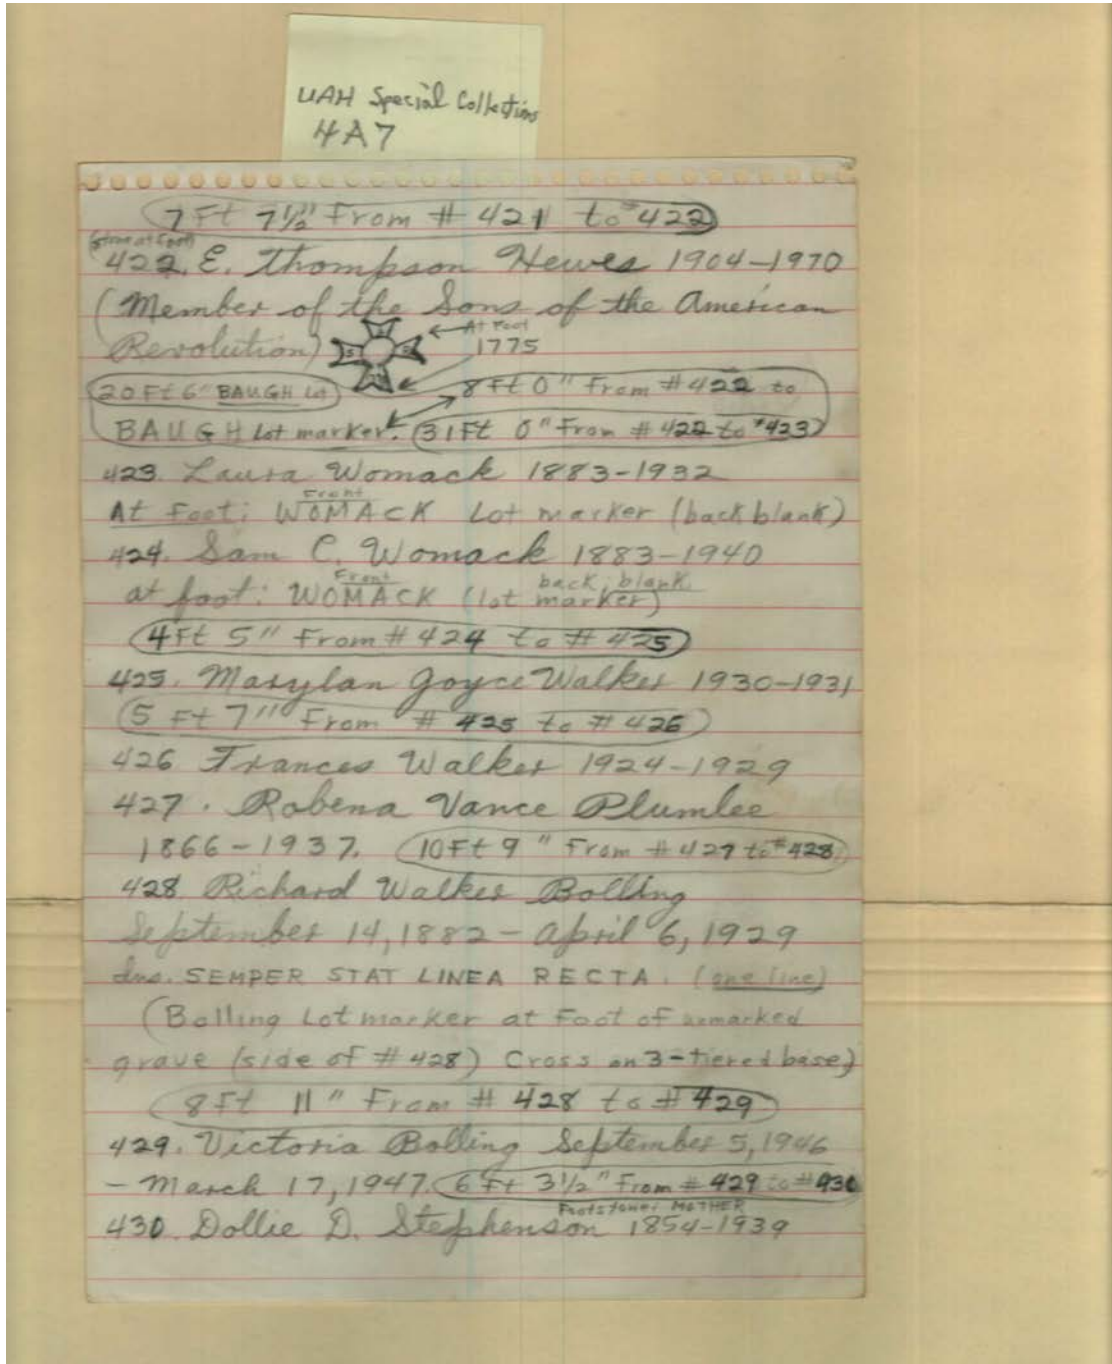 UAH Special Collections
4A7
7 Ft 7½" From # 421 to #422
(stone at foot)
422. E. Thompson Hewes 1904-1970
(Member of the Sons of the American
At Foot
Revolution) 1775
20 Ft 6" BAUGH Lot 8 Ft 0" From #422 to
BAUGH Lot marker. 31 Ft 0" From #422 to #423
423. Laura Womack 1883-1932
Front
At Foot: WOMACK Lot marker (back blank)
424. Sam C. Womack 1883-1940
Front back, blank
at foot: WOMACK (lot marker)
4 Ft 5" From # 424 to # 425
425. Marylan Joyce Walker 1930-1931
5 Ft 7" From # 425 to # 426
426 Frances Walker 1924-1929
427. Robena Vance Plumlee
1866-1937. 10 Ft 9" From #427 to #428
428. Richard Walker Bolling
September 14, 1882 - April 6, 1929
Ins. SEMPER STAT LINEA RECTA. (one line)
(Bolling Lot marker at Foot of unmarked
grave (side of #428) Cross on 3-tiered base)
8 Ft 11" From # 428 to # 429
429. Victoria Bolling September 5, 1946
- March 17, 1947. 6 Ft 3½" From #429 to #430
Footstone: MOTHER
430. Dollie D. Stephenson 1854-1939